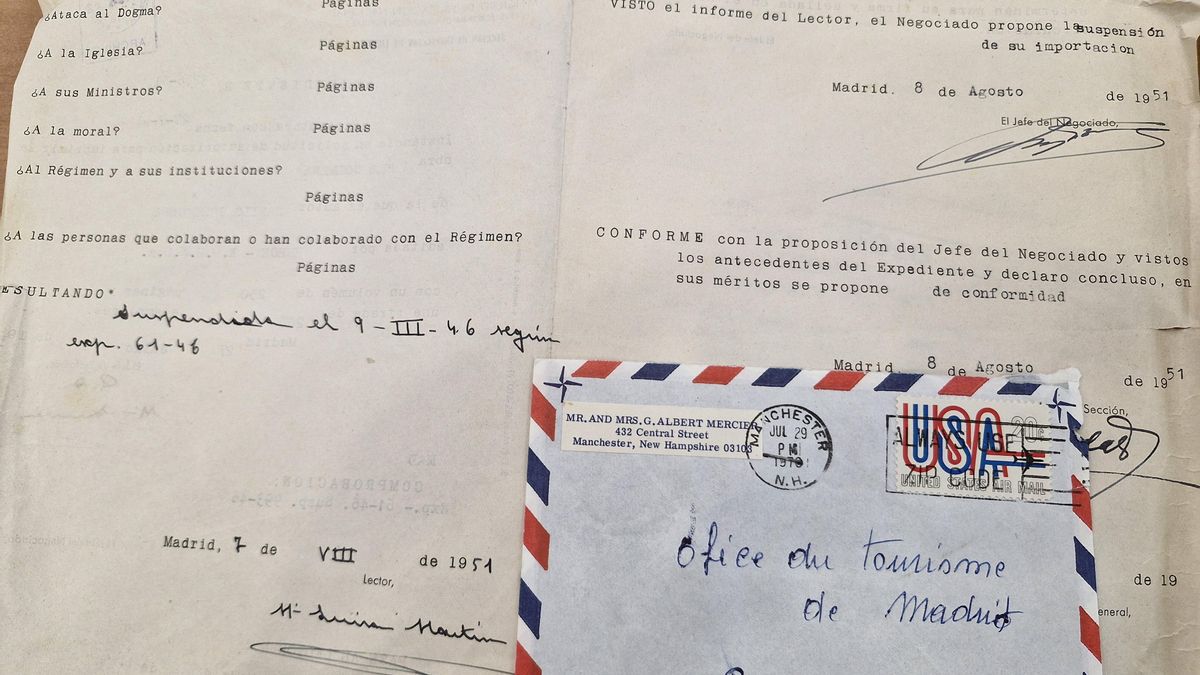 ¿Ataca al Dogma? Páginas
¿A la Iglesia? Páginas
¿A sus Ministros? Páginas
¿A la moral? Páginas
¿Al Régimen y a sus instituciones?
Páginas
¿A las personas que colaboran o han colaborado con el Régimen?
Páginas
ESULTANDO
Suspendida el 9-III-46 según
exp. 61-46
Madrid, 7 de VIII de 1951
Lector,
Mª Luisa Martín
VISTO el informe del Lector, el Negociado propone la suspensión
de su importacion
Madrid. 8 de Agosto de 1951
El Jefe del Negociado,
CONFORME con la proposición del Jefe del Negociado y vistos
los antecedentes del Expediente y declaro concluso, en
sus méritos se propone de conformidad
Madrid. 8 de Agosto de 1951
Sección,
de 19
eneral,
MR. AND MRS. G. ALBERT MERCIER
432 Central Street
Manchester, New Hampshire 03103
MANCHESTER
JUL 29
PM
N.H.
ALWAYS USE
ZIP CODE
USA 20c
UNITED STATES AIR MAIL
Ofice du tourisme
de Madrid
COMPROBACION: